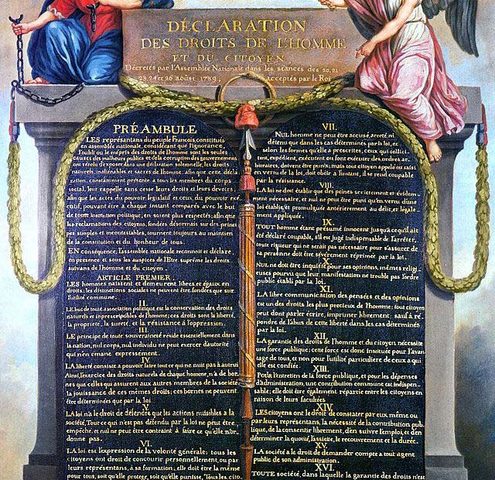 DÉCLARATION
DES DROITS DE L'HOMME
ET DU CITOYEN,
Décretés par l'Assemblée Nationale dans les séances des 20, 21
23, 24 et 26 août 1789, acceptés par le Roi
PRÉAMBULE
LES représentans du peuple François, constitués
en assemblée nationale, considérant que l'ignorance,
l'oubli ou le mépris des droits de l'homme sont les seules
causes des malheurs publics et de la corruption des gouvernemens,
ont résolu d'exposer dans une déclaration solemnelle, les droits
naturels, inaliénables et sacrés de l'homme; afin que cette décla-
ration, constamment présente à tous les membres du corps
social, leur rappelle sans cesse leurs droits et leurs devoirs;
afin que les actes du pouvoir législatif et ceux du pouvoir exé-
cutif, pouvant être à chaque instant comparés avec le but
de toute institution politique, en soient plus respectés; afin que
les réclamations des citoyens, fondées désormais sur des prin-
cipes simples et incontestables, tournent toujours au maintien
de la constitution et du bonheur de tous.
EN conséquence, l'assemblée nationale reconnoît et déclare,
en présence et sous les auspices de l'Être suprême les droits
suivans de l'homme et du citoyen.
ARTICLE PREMIER.
LES hommes naissent et demeurent libres et égaux en
droits; les distinctions sociales ne peuvent être fondées que sur
l'utilité commune.
II.
LE but de toute association politique est la conservation des droits
naturels et imprescriptibles de l'homme; ces droits sont la liberté,
la propriété, la sureté, et la résistance à l'oppression.
III.
LE principe de toute souveraineté réside essentiellement dans
la nation, nul corps, nul individu ne peut exercer d'autorité
qui n'en émane expressément.
IV.
LA liberté consiste à pouvoir faire tout ce qui ne nuit pas à autrui
Ainsi, l'exercice des droits naturels de chaque homme, n'a de bor-
nes que celles qui assurent aux autres membres de la société
la jouissance de ces mêmes droits; ces bornes ne peuvent
être déterminées que par la loi.
V.
LA loi n'a le droit de défendre que les actions nuisibles à la
société. Tout ce qui n'est pas défendu par la loi ne peut être
empêché, et nul ne peut être contraint à faire ce qu'elle n'or-
donne pas.
VI.
LA loi est l'expression de la volonté générale; tous les
citoyens ont droit de concourir personnellement, ou par
leurs représentans, à sa formation; elle doit être la même
pour tous, soit qu'elle protege, soit qu'elle punisse. Tous les cito-
VII.
NUL homme ne peut être accusé, arrêté ni
détenu que dans les cas déterminés par la loi, et
selon les formes qu'elle a prescrites, ceux qui sollici-
tent, expédient, exécutent ou font exécuter des ordres ar-
bitraires, doivent être punis; mais tout citoyen appelé ou saisi
en vertu de la loi, doit obéir à l'instant, il se rend coupable
par la résistance.
VIII.
LA loi ne doit établir que des peines strictement et évidem-
ment nécessaires, et nul ne peut être puni qu'en vertu d'une
loi établie et promulguée antérieurement au délit, et légale-
ment appliquée.
IX.
TOUT homme étant présumé innocent jusqu'à ce qu'il ait
été déclaré coupable, s'il est jugé indispensable de l'arrêter,
toute rigueur qui ne seroit pas nécessaire pour s'assurer de
sa personne doit être sévèrement réprimée par la loi.
X.
NUL ne doit être inquiété pour ses opinions, mêmes religi-
euses pourvu que leur manifestation ne trouble pas l'ordre
public établi par la loi.
XI.
LA libre communication des pensées et des opinions
est un des droits les plus précieux de l'homme; tout citoyen
peut donc parler écrire, imprimer librement: sauf à ré-
pondre de l'abus de cette liberté dans les cas déterminés
par la loi.
XII.
LA garantie des droits de l'homme et du citoyen nécessite
une force publique; cette force est donc instituée pour l'avan-
tage de tous, et non pour l'utilité particuliere de ceux à qui
elle est confiée.
XIII.
POUR l'entretien de la force publique, et pour les dépenses
d'administration, une contribution commune est indispen-
sable; elle doit être également répartie entre les citoyens en
raison de leurs facultées.
XIV.
LES citoyens ont le droit de constater par eux même ou
par leurs représentans, la nécessité de la contribution pub-
lique, de la consentir librement, d'en suivre l'emploi, et d'en
déterminer la quotité, l'assiette, le recouvrement et la durée.
XV.
LA société a le droit de demander compte à tout agent
public de son administration.
XVI.
TOUTE société, dans laquelle la garantie des droits n'est